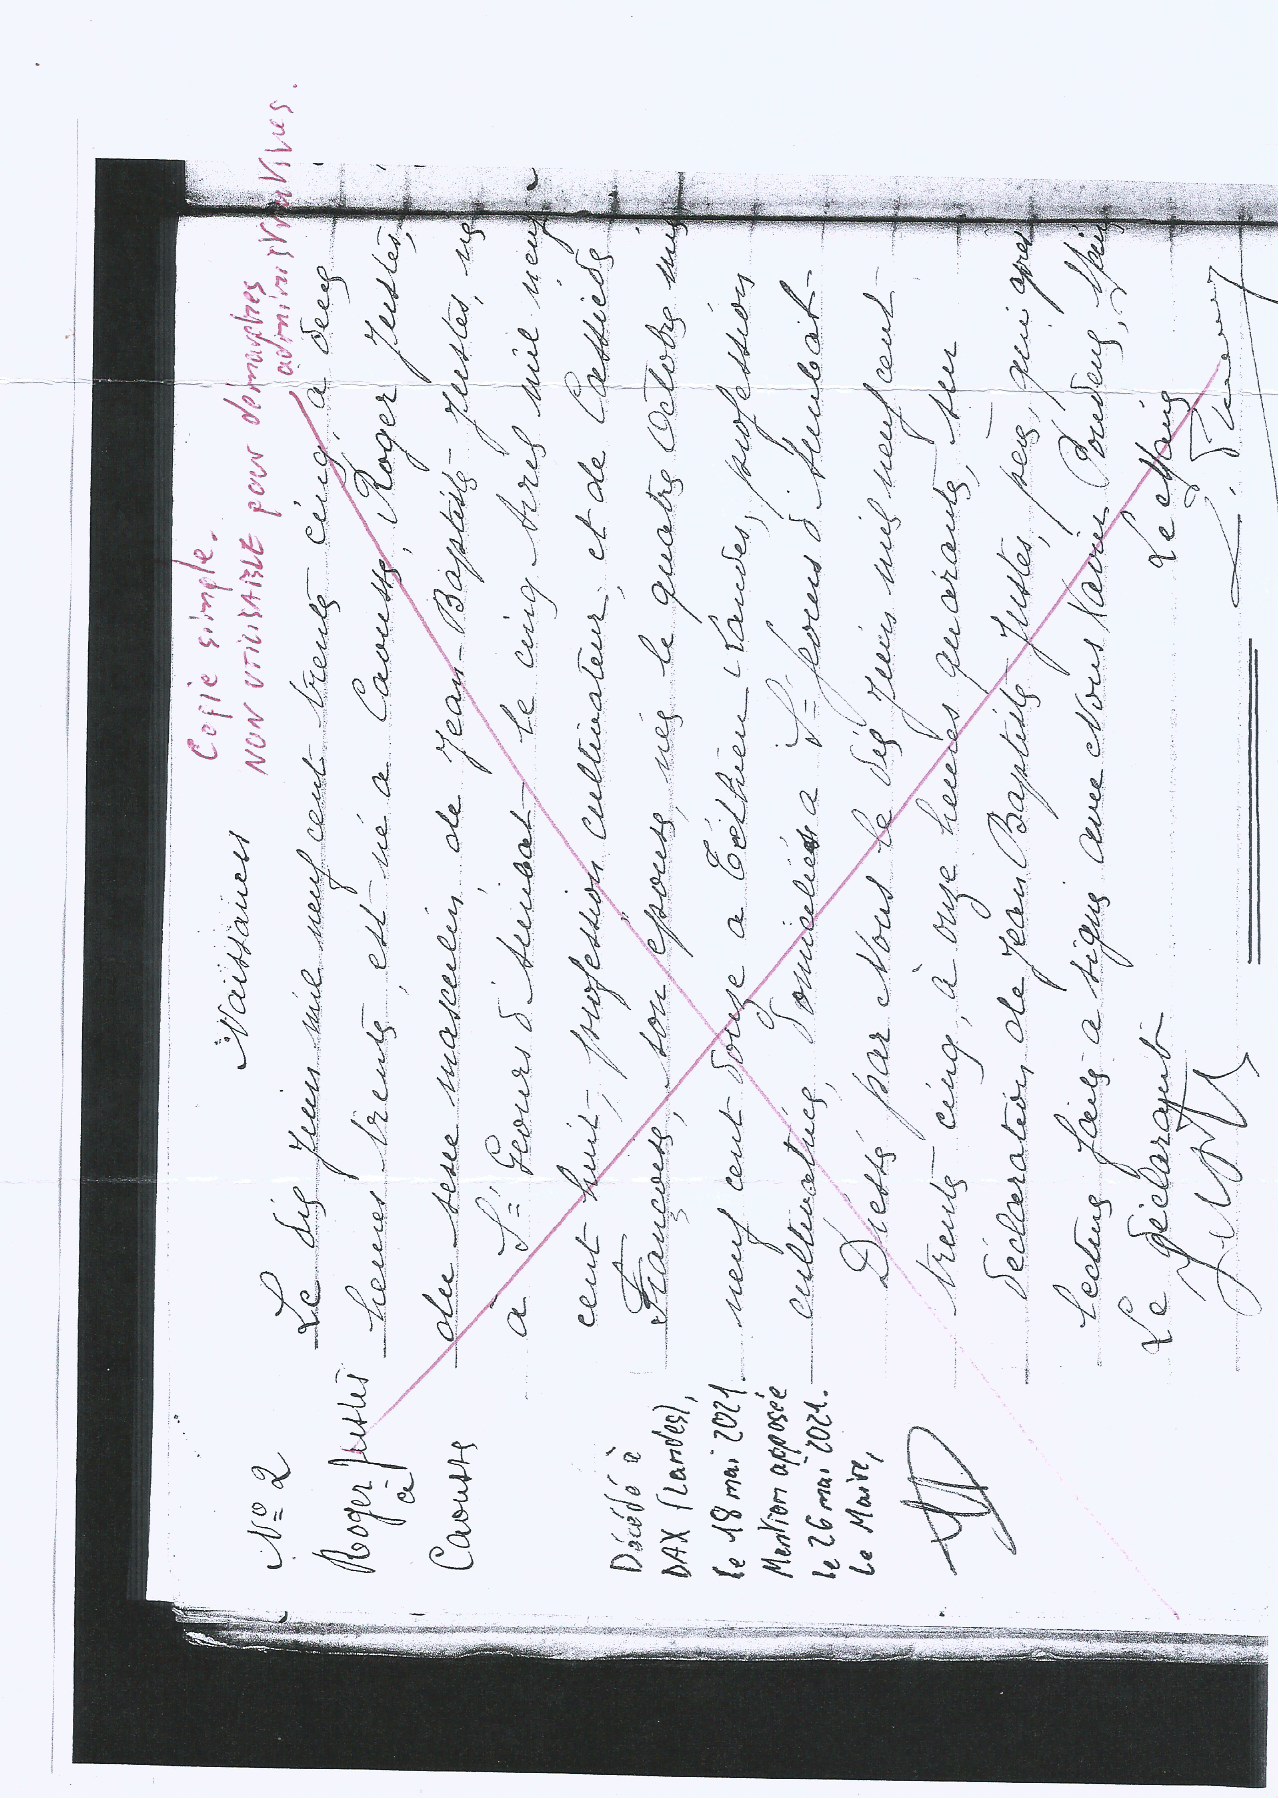 Copie simple.
NON UTILISABLE pour démarches
administratives.
Naissances
N° 2
Roger Justes
à
Caousse
Décédé à
DAX (Landes),
le 18 mai 2021.
Mention apposée
le 26 mai 2021.
Le Maire,
Le dix Juin mil neuf cent trente cinq, à deux
heures trente, est né à Caousse, Roger Justes,
du sexe masculin, de Jean-Baptiste Justes, né
à St Geours d'Auribat le cinq Avril mil neuf
cent huit, profession cultivateur, et de Cassiède
Françoise, son épouse, née le quatre Octobre mil
neuf cent douze à Téthieu Landes, profession
cultivatrice, domiciliés à St Geours d'Auribat
Dressé par Nous le dix Juin mil neuf cent
trente cinq, à onze heures quarante, sur
déclaration de Jean Baptiste Justes, père, qui après
lecture faite a signé avec Nous Xavier
Le déclarant Le Maire